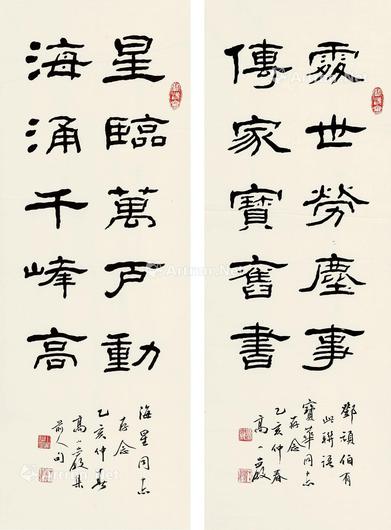 處世勞塵事
傳家寶舊書
鄧頑伯有
此聯語
寶華同志
存念
乙亥仲春
高一
星臨萬戶動
海涌千峰高
海星同志
存念
乙亥仲春
高一 集
前人句
Artron.Net
Artron.Net